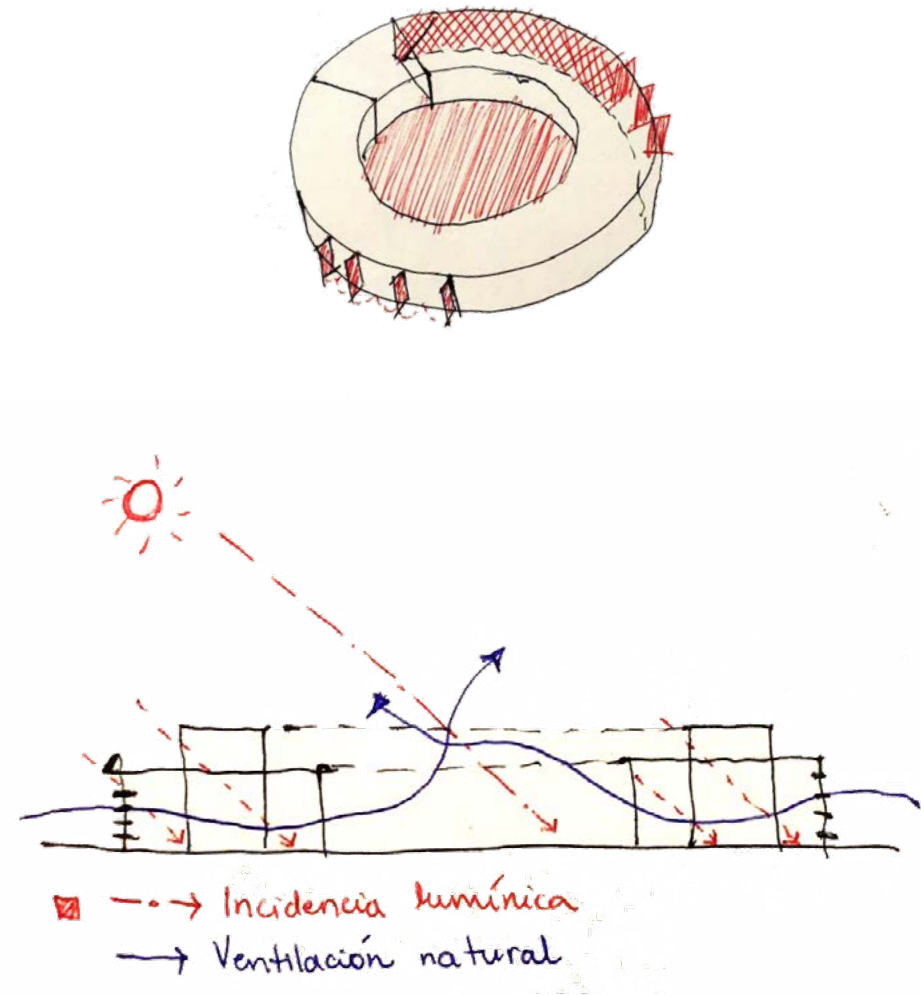 Incidencia lumínica
Ventilación natural